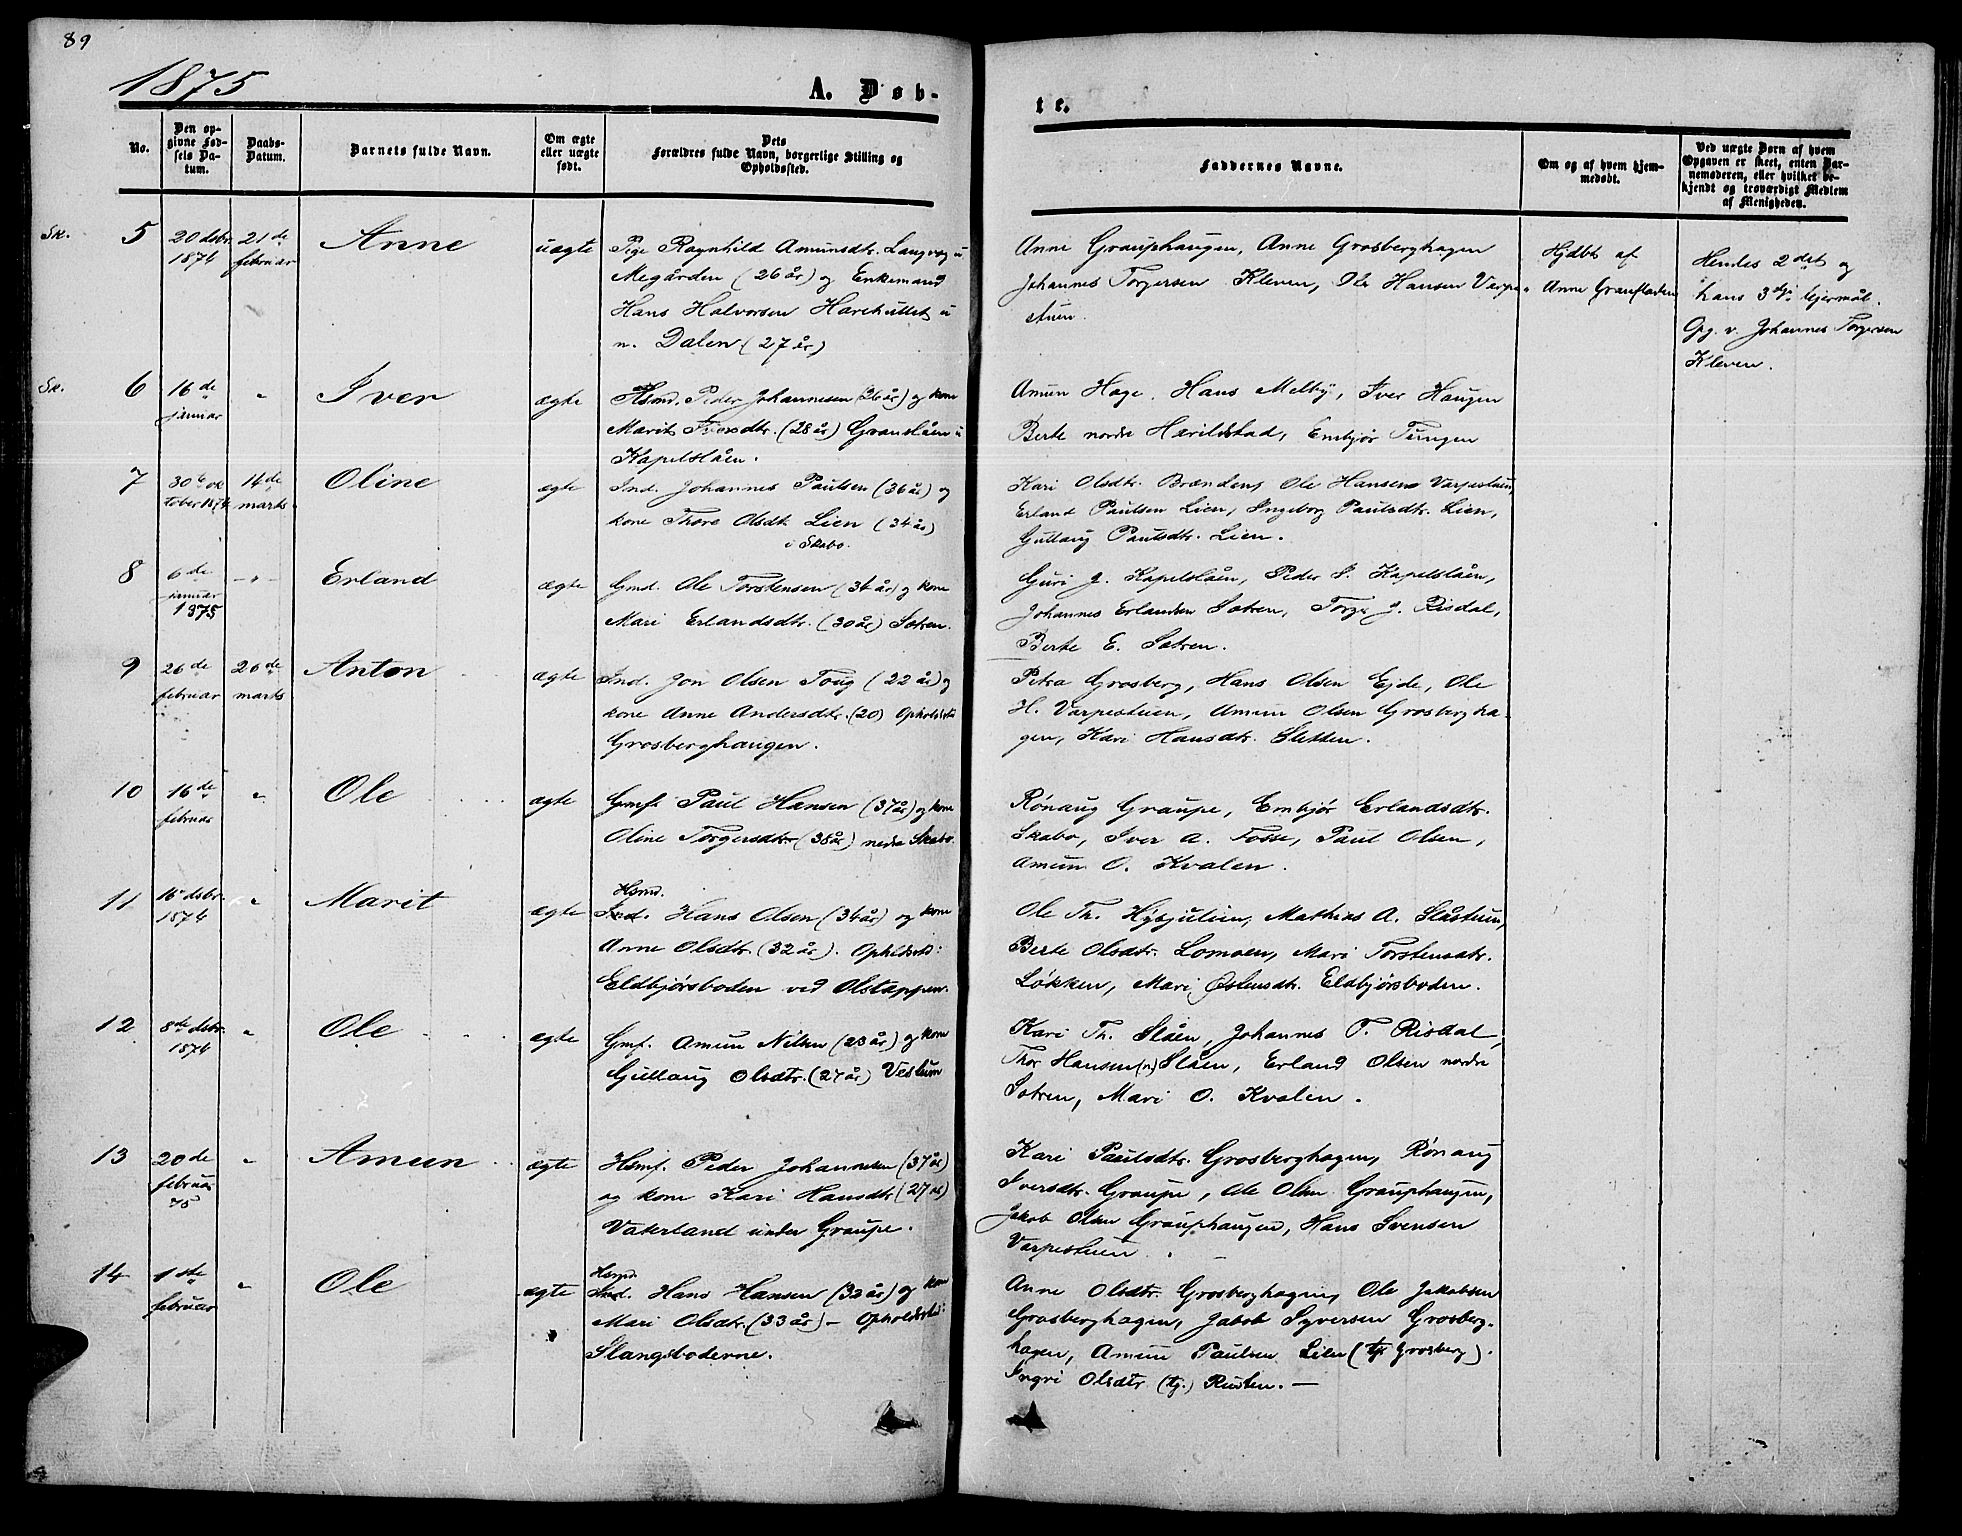 89
1875
A. Døb-
te.
No.
Den op-
givne Fød-
sels Da-
tum.
Daabs-
Datum.
Barnets fulde Navn.
Om ægte
eller uægte
født.
Dets
Forældres fulde Navn, borgerlige Stilling og
Opholdssted.
Faddernes Navne.
Om og af hvem hjem-
medøbt.
Ved uægte Børn af hvem
Opgaven er skeet, enten Bar-
nemoderen, eller hvilket be-
kjendt og troværdigt Medlem
af Menigheden.
Sk.
5
20 dsbr.
1874
21de
februar
Anne
uægte
Pige Ragnhild Amunsdtr. Langvog u
Megården (26 år) og Enkemand
Hans Halvorsen Harehullet u
n. Dalen (27 år)
Anne Grauphaugen, Anne Grosberghagen
Johannes Torgersen Kleven, Ole Hansen Varpe-
stuen.
Hjdbt af
Anne
Hendes 2det og
hans 3die lejermål.
Opg. v. Johannes Torgersen
Kleven.
Sk.
6
16de
januar
"
Iver
ægte
Hsmd. Peder Johannesen (36 år) og kone
Marit Iversdtr. (28 år) Granslåen u
Kapelslåen.
Amun Hage, Hans Melby, Iver Haugen
Berte nordre Harildstad, Embjør Tungen
7
30te ok
tober 1874
14de
marts
Oline
ægte
Ind. Johannes Paulsen (36 år) og
kone Thore Olsdt. Lien (34 år)
i Skabo.
Kari Olsdtr. Brænden, Ole Hansen Varpestuen,
Erland Paulsen Lien, Ingeborg Paulsdtr. Lien,
Gullaug Paulsdtr. Lien.
8
6de
januar
1875
- " -
Erland
ægte
Gmd. Ole Torstensen (34 år) og kone
Mari Erlandsdtr. (30 år) Sotren.
Guri J. Kapelslåen, Peder I. Kapelslåen,
Johannes Erlandsen Sotren, Torger J. Risdal,
Berte E. Sotren.
9
26de
februar
26de
marts
Anton
ægte
Ind. Jon Olsen Toug (22 år) og
kone Anne Andersdtr. (20) Opholdssted
Grosberghaugen.
Petra Grosberg, Hans Olsen Ejde, Ole
H. Varpestuen, Amun Olsen Grosbergha-
gen, Kari Hansdtr. Sletten.
10
16de
februar
"
Ole
ægte
Gmf. Paul Hansen (37 år) og kone
Oline Torgersdtr. (38 år) nedre Skabo.
Rønaug Graupe, Embjør Erlandsdtr.
Skabo, Iver A. Fosse, Paul Olsen,
Amun O. Kvalen.
11
16 dsbr.
1874
"
Marit
ægte
Hsmd.
Ind. Hans Olsen (34 år) og kone
Anne Olsdtr. (32 år). Opholdsstd:
Eldbjørsboden ved Olstappen.
Ole Th. Mathias A. Slåstuen,
Berte Olsdtr. Lomoen, Mari Torstensdtr.
Løkken, Mari Østensdtr. Eldbjørsboden.
12
8de dsbr.
1874
"
Ole
ægte
Gmf. Amun Nilsen (23 år) og kone
Gullaug Olsdtr. (27 år) Veslum
Kari Th. Slåen, Johannes T. Risdal,
Thor Hansen (n) Slåen, Erland Olsen nordre
Sotren, Mari O. Kvalen.
13
20de
februar
75
"
Amun
ægte
Hsmf. Peder Johannesen (37 år)
og kone Kari Hansdtr. (27 år)
Vaterland under Graupe.
Kari Paulsdtr. Grosberghagen, Rønaug
Iversdtr. Graupe, Ole Olsen Grauphaugen,
Jakob Olsen Grauphaugen, Hans Svensen
Varpestuen.
14
1ste
februar
"
Ole
ægte
Hsmd.
Ind. Hans Hansen (32 år) og kone
Mari Olsdtr. (33 år) - Opholdssted:
Slangsboderne.
Anne Olsdtr. Grosberghagen, Ole Jakobsen
Grosberghagen, Jakob Syversen Grosberg-
hagen, Amun Paulsen Lien (tj. Grosberg).
Ingri Olsdtr. (tj.) Rusten. -